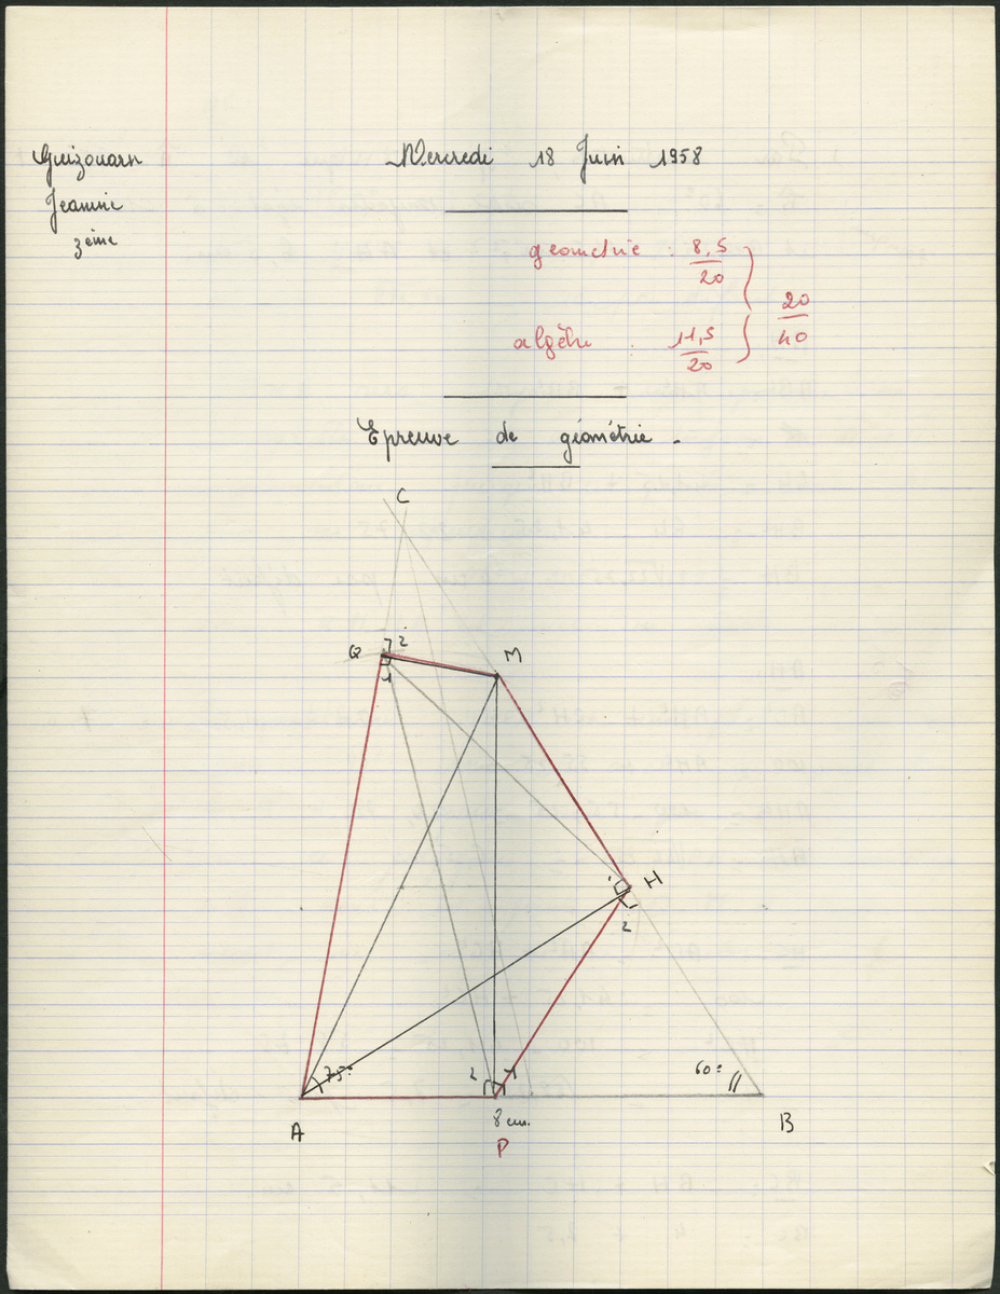 Guizouarn
Jeanine
3ème
Mercredi 18 Juin 1958
géométrie : 8,5/20
20/40
algèbre : 11,5/20
Epreuve de géométrie.
C
Q 2
1
M
H
1
2
75°
2 1
60°
8 cm.
A
P
B